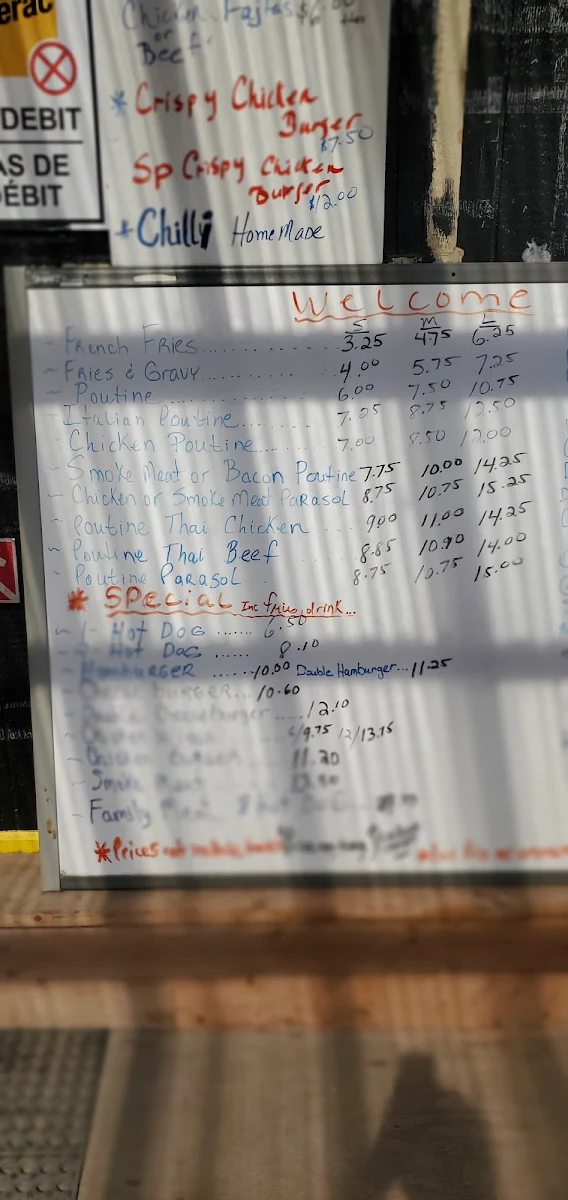 Chicken Fajitas
or
Beef.
* Crispy Chicken
Burger
$7.50
Sp Crispy Chicken
Burger
$12.00
+ Chilli Home Made
DEBIT
AS DE
DÉBIT
Welcome
S M L
- French Fries.......... 3.25 4.75 6.25
- Fries & Gravy.......... 4.00 5.75 7.25
- Poutine .......... 6.00 7.50 10.75
- Italian Poutine.......... 7.25 8.75 12.50
- Chicken Poutine.......... 7.00 8.50 12.00
- Smoke Meat or Bacon Poutine 7.75 10.00 14.25
- Chicken or Smoke Meat Parasol 8.75 10.75 15.25
- Poutine Thai Chicken .... 9.00 11.00 14.25
- Poutine Thai Beef 8.85 10.90 14.00
- Poutine Parasol 8.75 10.75 15.00
* Special Inc fries, drink...
~ 1- Hot Dog ...... 6.50
Hot Dog ...... 8.10
- Hamburger ......10.00 Double Hamburger...11.25
Burger... 10.60
12.10
/9.75 12/13.75
- Chicken Burger 11.20
- Smoke Meat
- Family
* Prices not